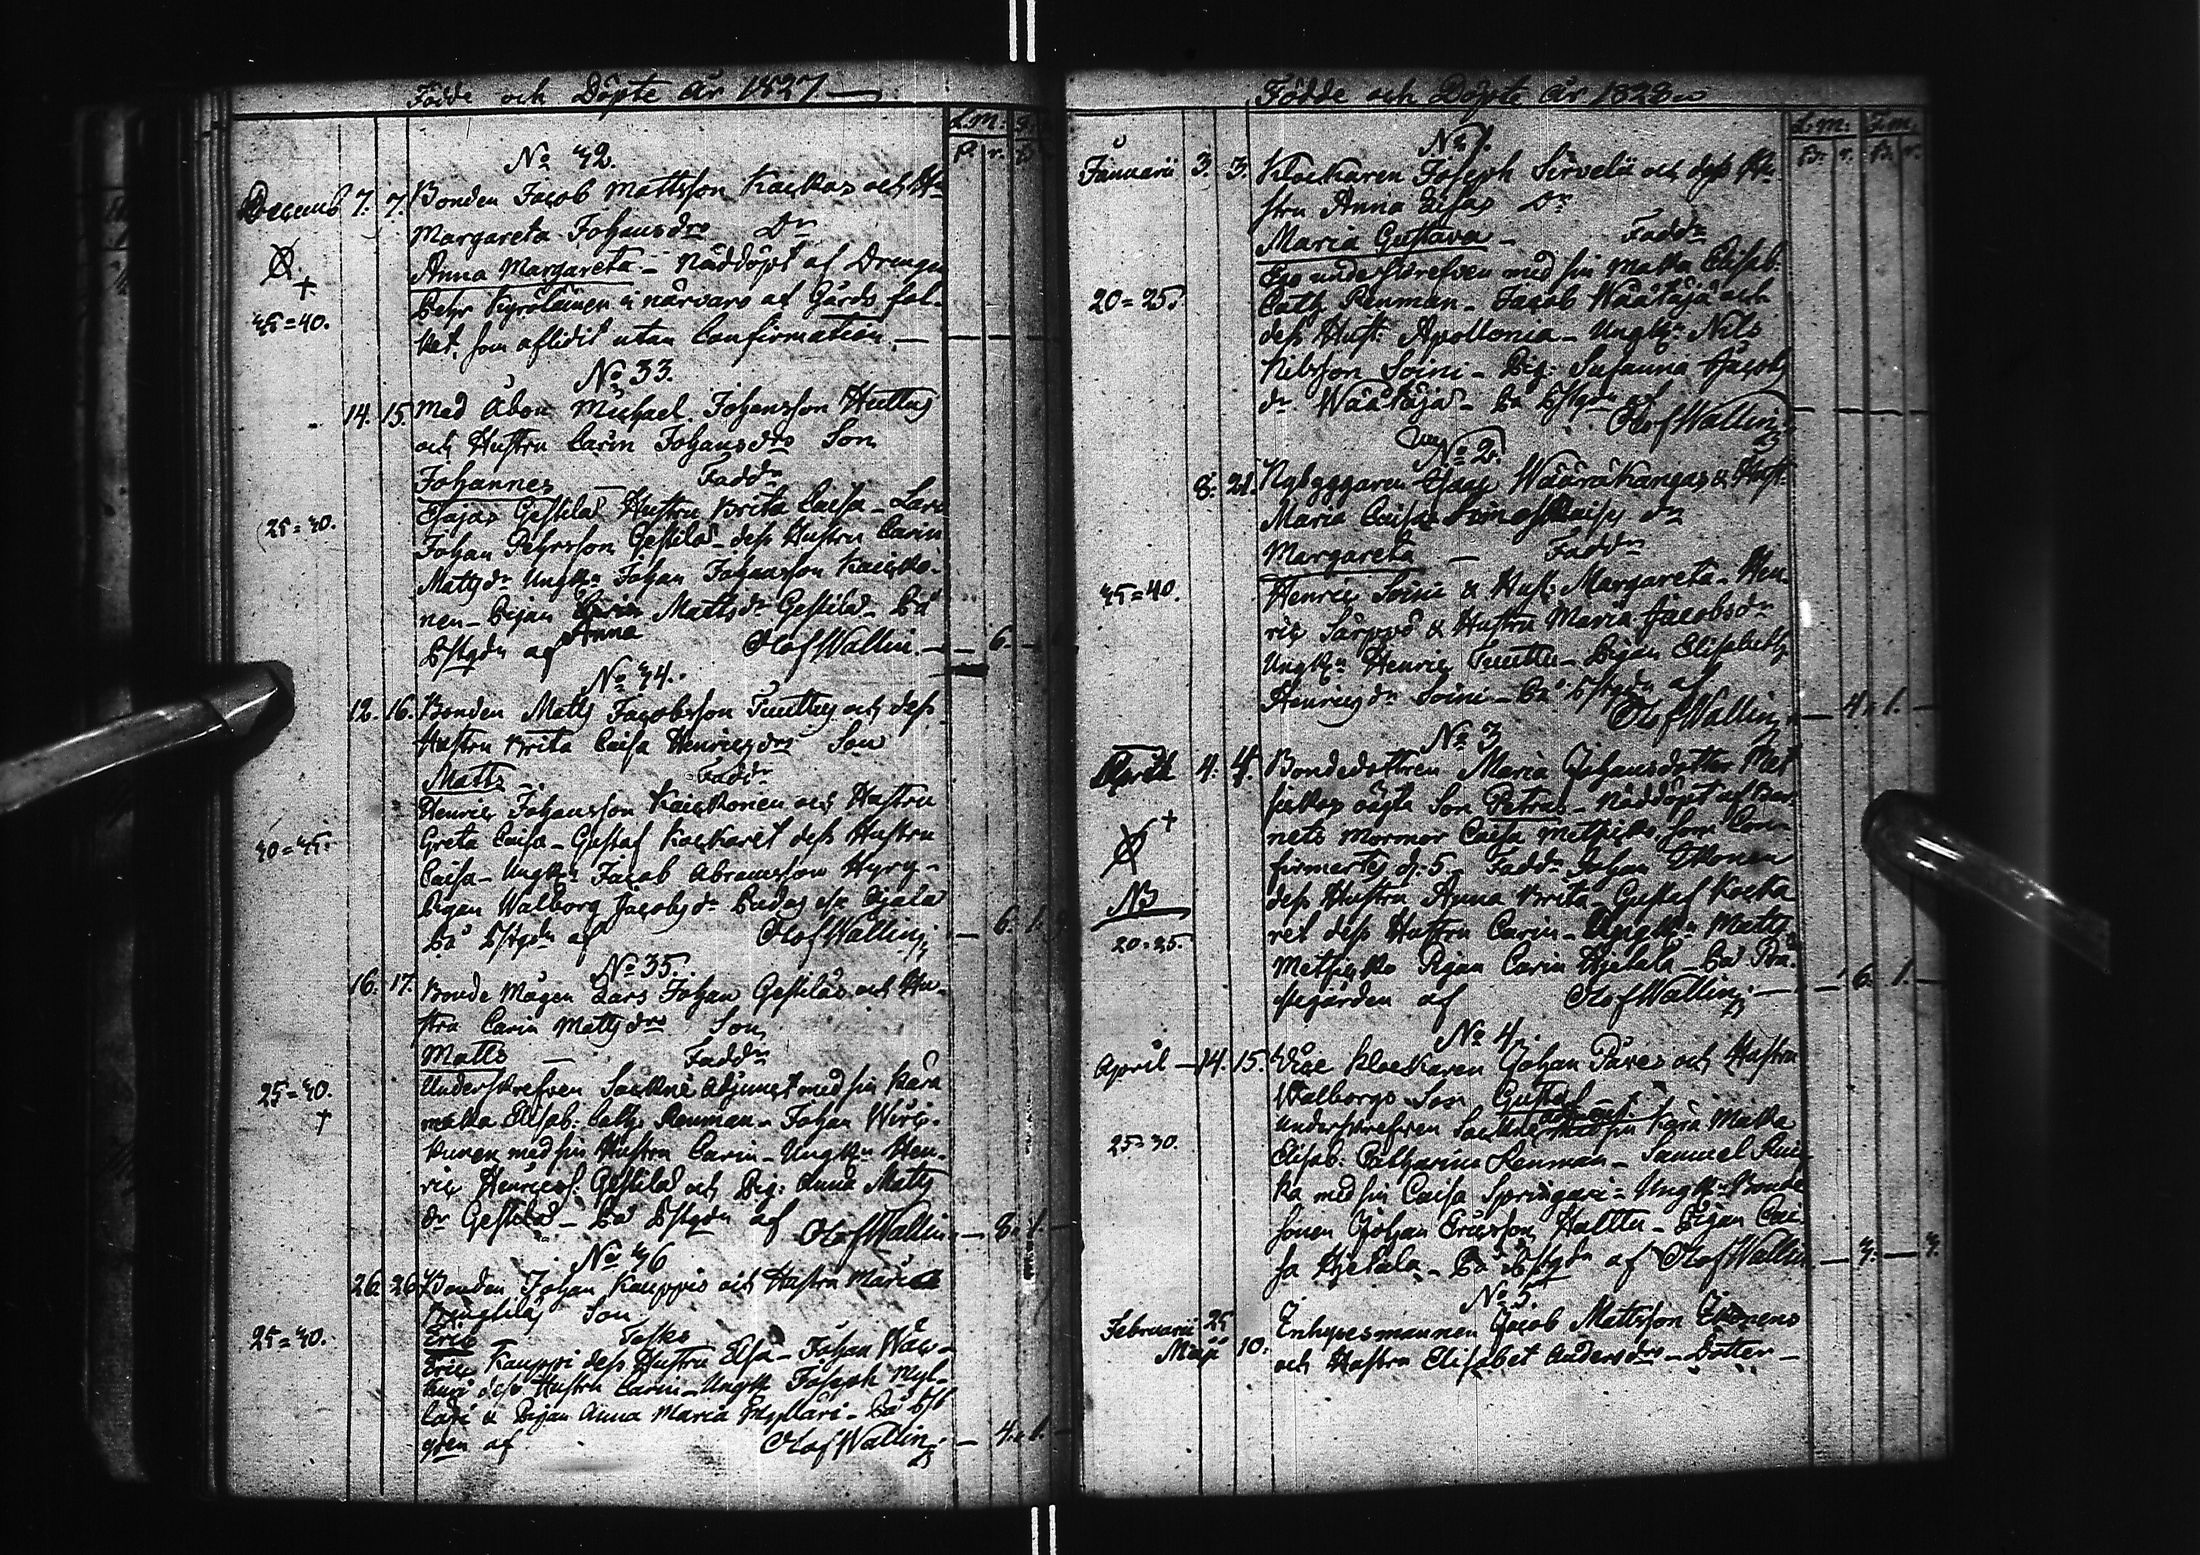 Födde och Döpte År 1827
L. m.
B. r. B
No 42.
Decemb 7. 7. Bonden Jacob Mattsson och Hu
Margareta Johansdrs Dr
Anna Margareta - Nöddöpt af Drengen
Pehr Kyröläinen i närvaro af Gårds fol-
ket, som aflidit utan Confirmation. —
35=40.
No 33.
14. 15. Med Åbon Michael Johansson Huttus
och Hustru Carin Johansdrs Son
Johannes — Faddr
Esajas Gestilä Hustru Brita Caisa - Lars
25=30.
Johan Pehrsson Gestilä - dess Hustru Carin
Mattsdr Ungkn Johan Johansson Kaicko-
nen - Pigan Anna Mattsdr Gestilä - På
Pstgdn af Olof Wallin. — 6.
No 34.
12. 16. Bonden Matts Jacobsson Tuuttus och dess
Hustru Brita Caisa Henricsdrs Son
Matts - Faddr
Henric Johansson Kaickonen och Hustru
Greta Caisa - Gustaf Kockaret dess Hustru
30=35.
Caisa - Ungkn Jacob Abramsson Hyry -
Pigan Walborg Jacobsdr
På Pstgdn af Olof Wallin — 6. 1.
No 35.
16. 17. Bonde Mågen Lars Johan Gestiläs och Hu-
stru Carin Mattsdrs Son
Matts — Faddr
Underskrefven Sockne Adjunct med sin kära
25=30.
maka Elisab: Cath: Renman - Johan Wirc-
kunen med sin Hustru Carin - Ungkn Hen-
ric Henricss. Gestilä och Pig: Anna Matts
dr Gestilä - På Pstgdn af Olof Wallin — 8. 1.
No 36
26. 26. Bonden Johan Kauppis och Hustru Maria
Son
Eric Testes
25=30.
Eric Kauppi dess Hustru Elsa - Johan
dess Hustru Carin - Ungk Joseph Myl-
läri & Pigan Anna Maria Mylläri - På Pst
gden af Olof Wallin — 4. 1.
Födde och Döpte År 1828
L. m. T. m.
B. r. B. r.
No 1.
Januarii 3. 3. Klockaren Joseph Sirvelii och dess Hu-
stru Anna Caisas Dr
Maria Gustava - Faddr
Ego underskrefven med sin maka Elisab:
20=25.
Cath. Renman - Jacob Wäätäjä och
dess Hust: Apollonia - Ungkn Nils
Nilsson Soini - Pig: Susanna Jacobs
dr Wäätäjä - På Pstgdn af Olof Wallin
No 2.
8. 21. Nybyggaren Isac Määräkangas & Hust:
Maria Caisas dr
Margareta — Faddr
Henric Soini & Hust: Margareta - Hen-
35=40.
ric Särppö & Hustru Maria Jacobsdr
Ungkn Henric Tuuttu - Pigan Elisabeth
Henricsdr Soini - På Pstgdn af
Olof Wallin — 4. 1. —
No 3
April 4. 4. Bondedottren Maria Johansdotter Met
sickos oägta Son Petrus - Nöddöpt af Bar-
nets Mormor Caisa Metsicko som Con-
firmerts d. 5 - Faddr Johan Ikonen
dess Hustru Anna Brita - Gustaf Kocka
NB
ret dess Hustru Carin - Ungkn Matts
20=25.
Metsicko Pigan Carin Hjetala - På Prä-
stegården af Olof Wallin — 6. 1. —
No 4.
April — 14. 15. Vice Klockaren Johan Päves och Hustru
Walborgs Son Gustaf
Underskrefven Sockne adjunct med sin kära Maka
25=30.
Elisab: Catharina Renman - Samuel
ka med sin Caisa Springari - Ungkn Bonde
sonen Johan Ericsson Halttu - Pigan Cai-
sa Hjetala - På Pstgdn af Olof Wallin — 3. — 3.
No 5.
Februarii 25 Inhysesmannen Jacob Mattsson Ikonens
Maji 10. och Hustru Elisabet Andersdrs - Dotter -